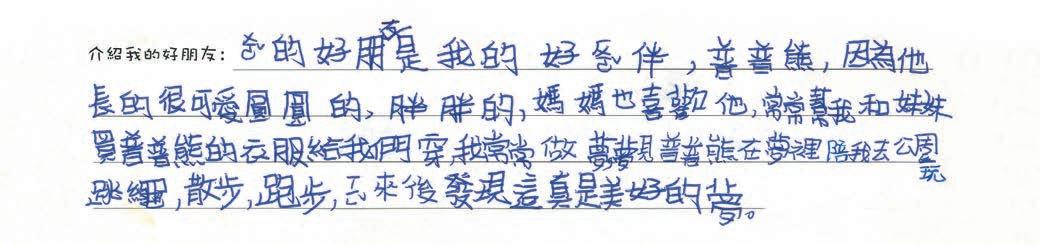 介紹我的好朋友：我的好朋友是我的好同伴，普普熊，因為他
長的很可愛圓圓的、胖胖的，媽媽也喜歡他，常常幫我和妹妹
買普普熊的衣服給我們穿，我常常做夢夢見普普熊在夢裡陪我去公園玩
跳繩，散步，跑步，來後發現這真是美好的夢。